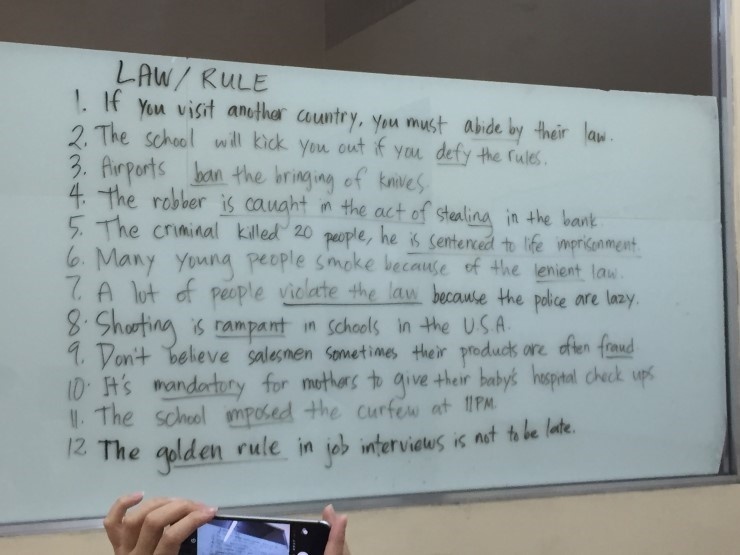 LAW/ RULE
1. If you visit another country, you must abide by their law.
2. The school will kick you out if you defy the rules.
3. Airports ban the bringing of knives.
4. The robber is caught in the act of stealing in the bank.
5. The criminal killed 20 people, he is sentenced to life imprisonment.
6. Many young people smoke because of the lenient law.
7. A lot of people violate the law because the police are lazy.
8. Shooting is rampant in schools in the U.S.A.
9. Don't believe salesmen sometimes their products are often fraud
10. It's mandatory for mothers to give their baby's hospital check ups
11. The school imposed the curfew at 11PM
12. The golden rule in job interviews is not to be late.